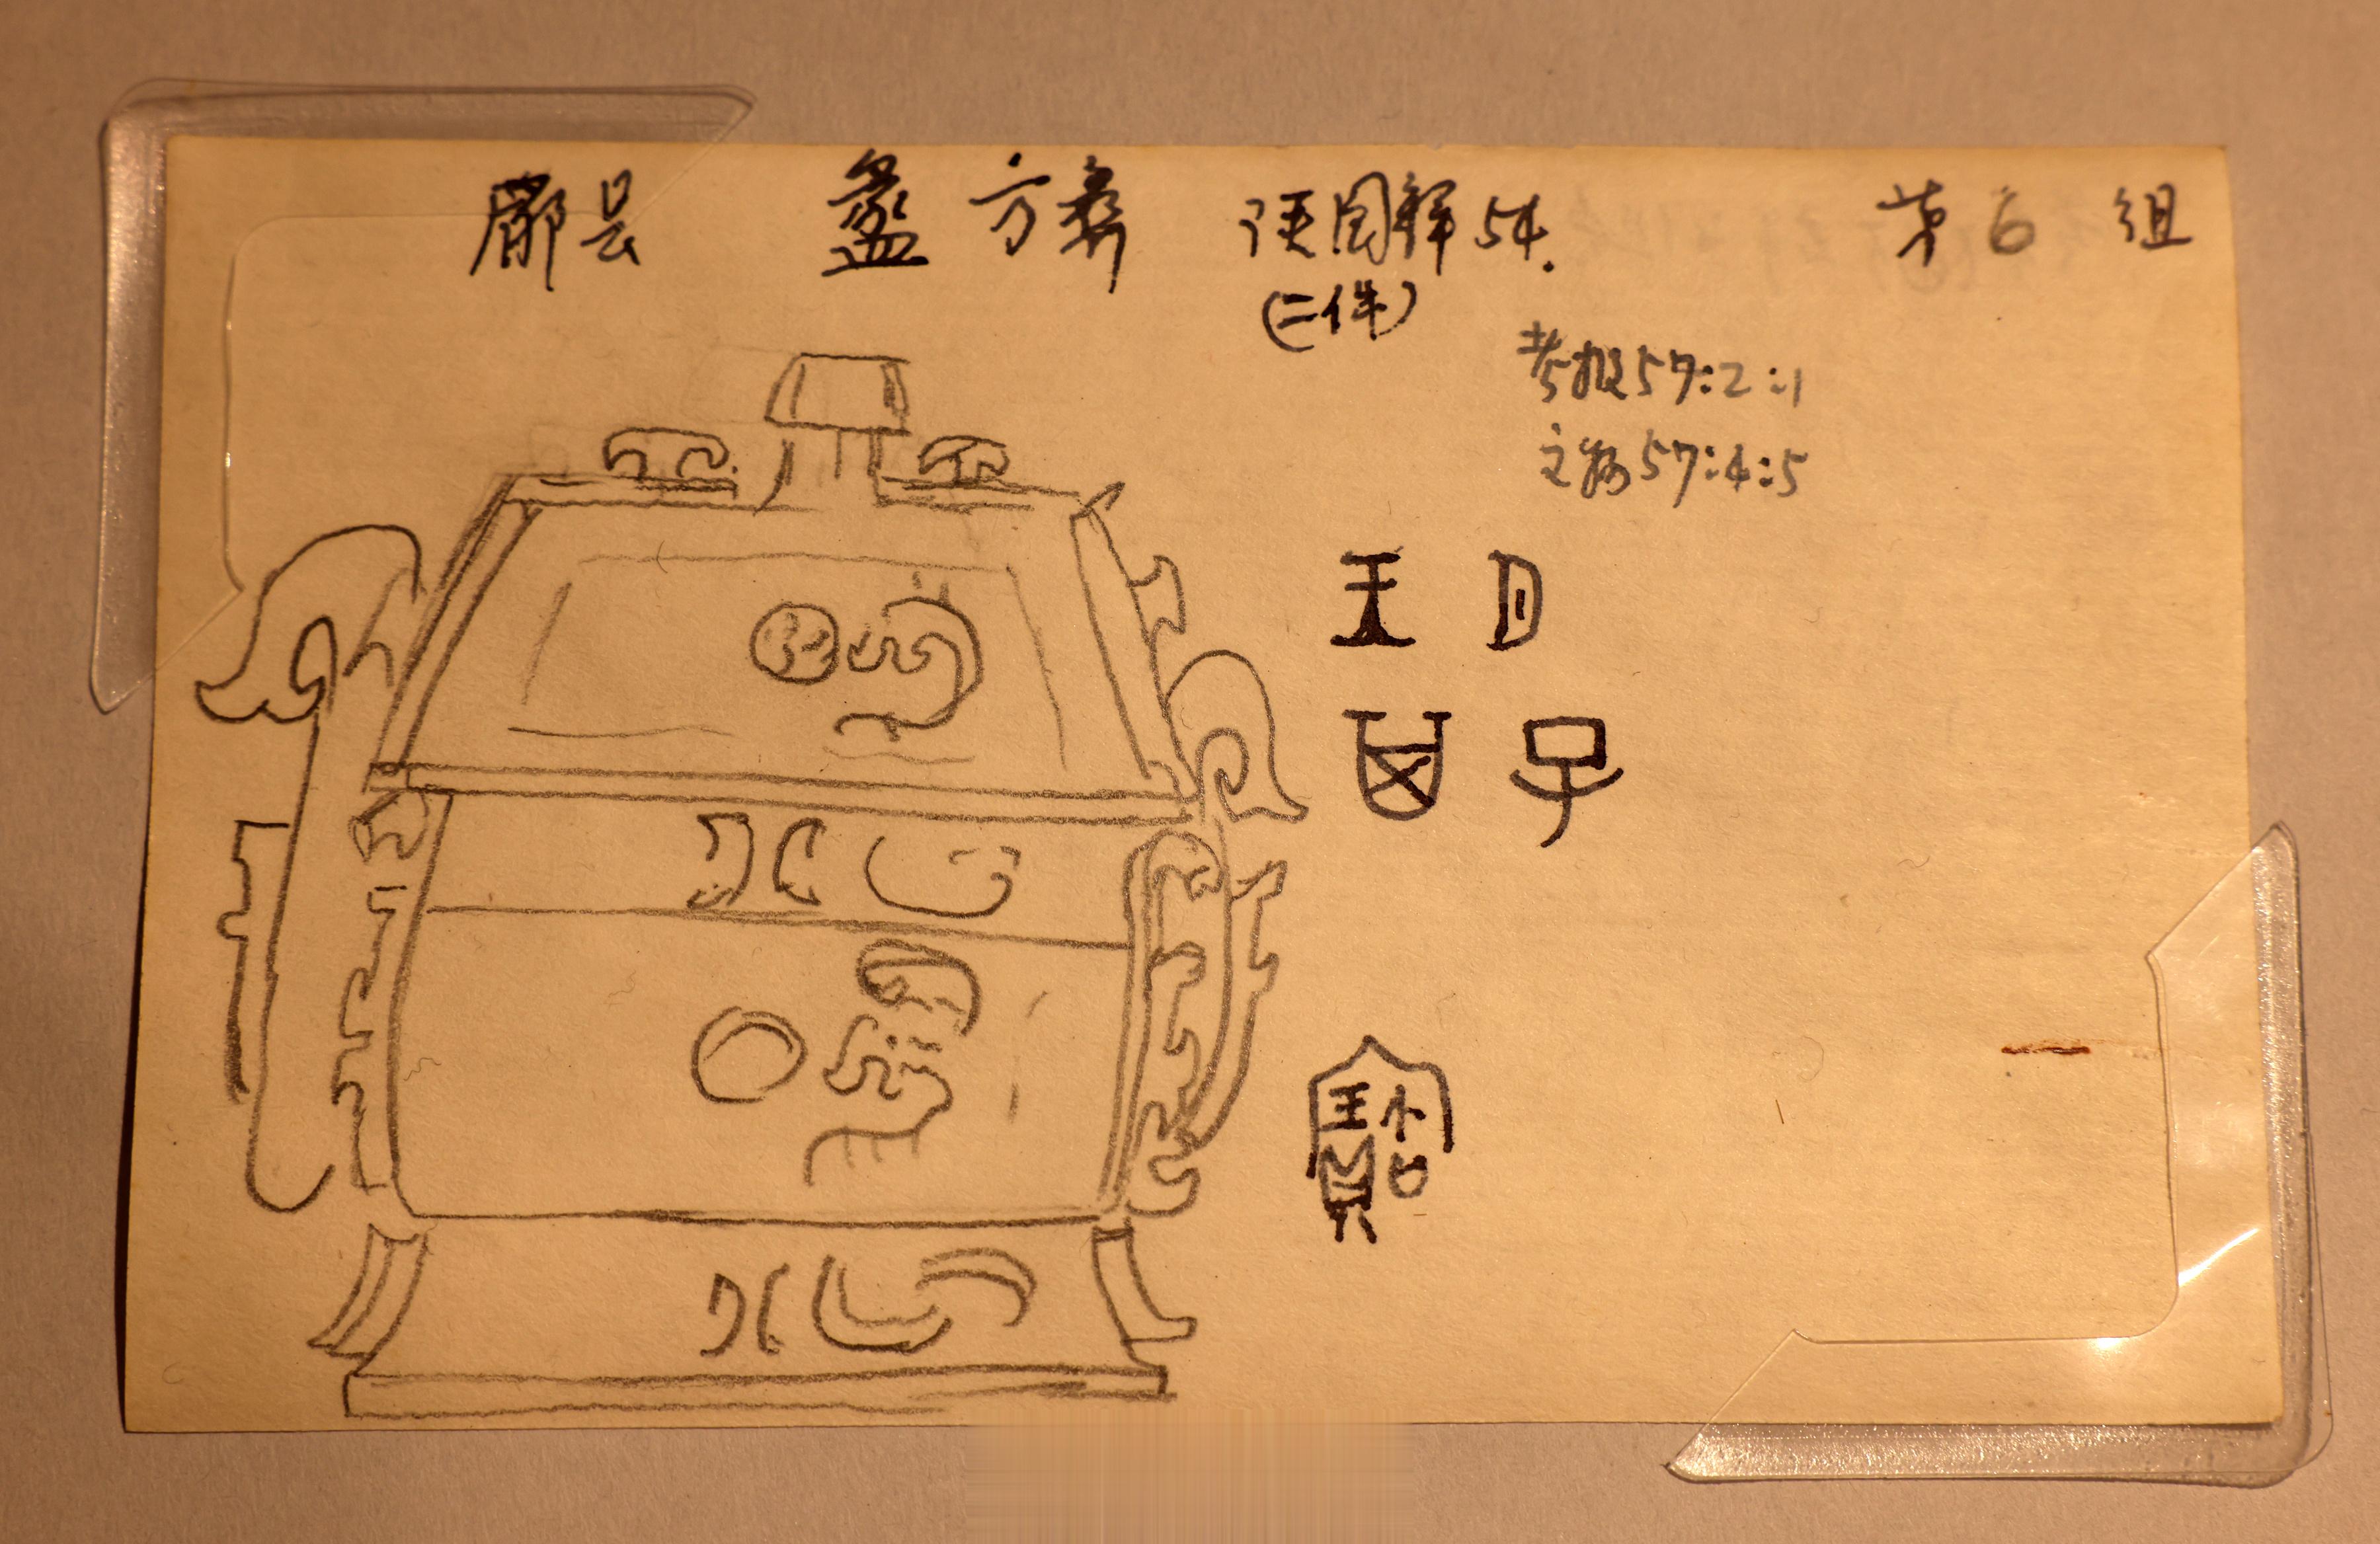 郿县 盠方彝 陕图释54. 第6组
(二件)
考报57:2:1
文物57:4:5
王